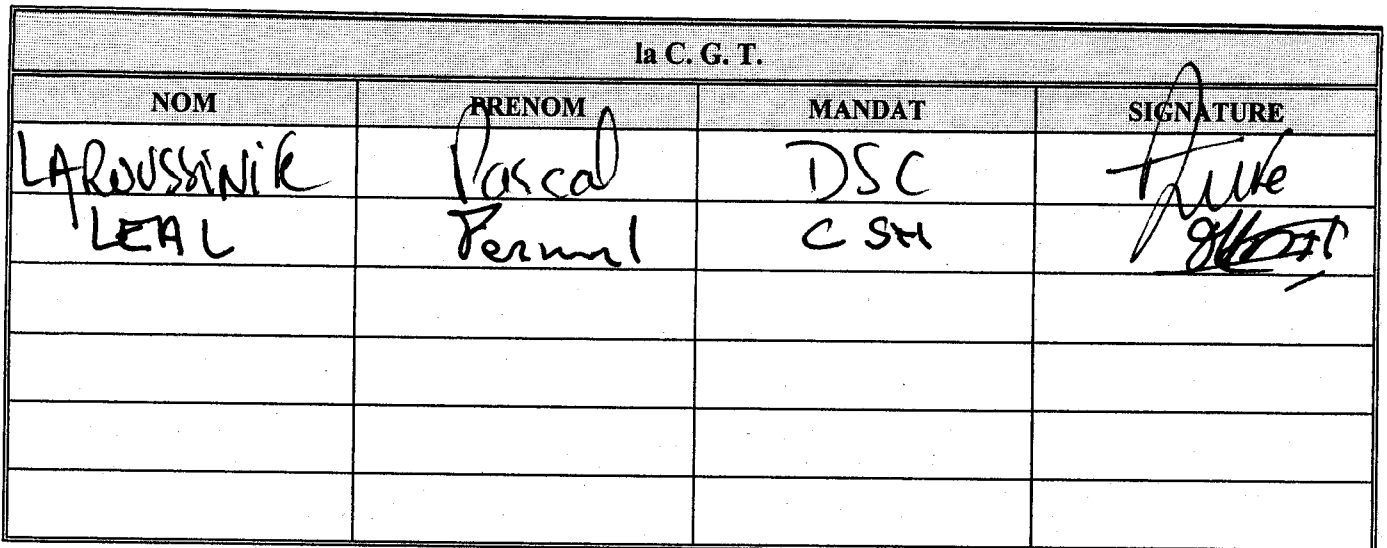 la C. G. T.
NOM PRENOM MANDAT SIGNATURE
LAROUSSINIE Pascal DSC
LEAL CSH